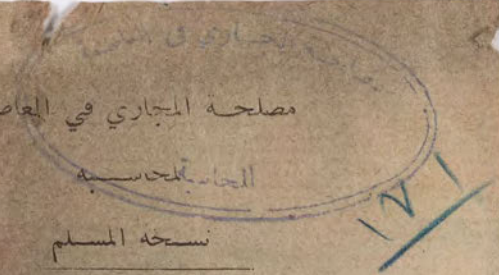 مصلحة المجاري في
المحاسبه
نسخه المسلم
١٧١